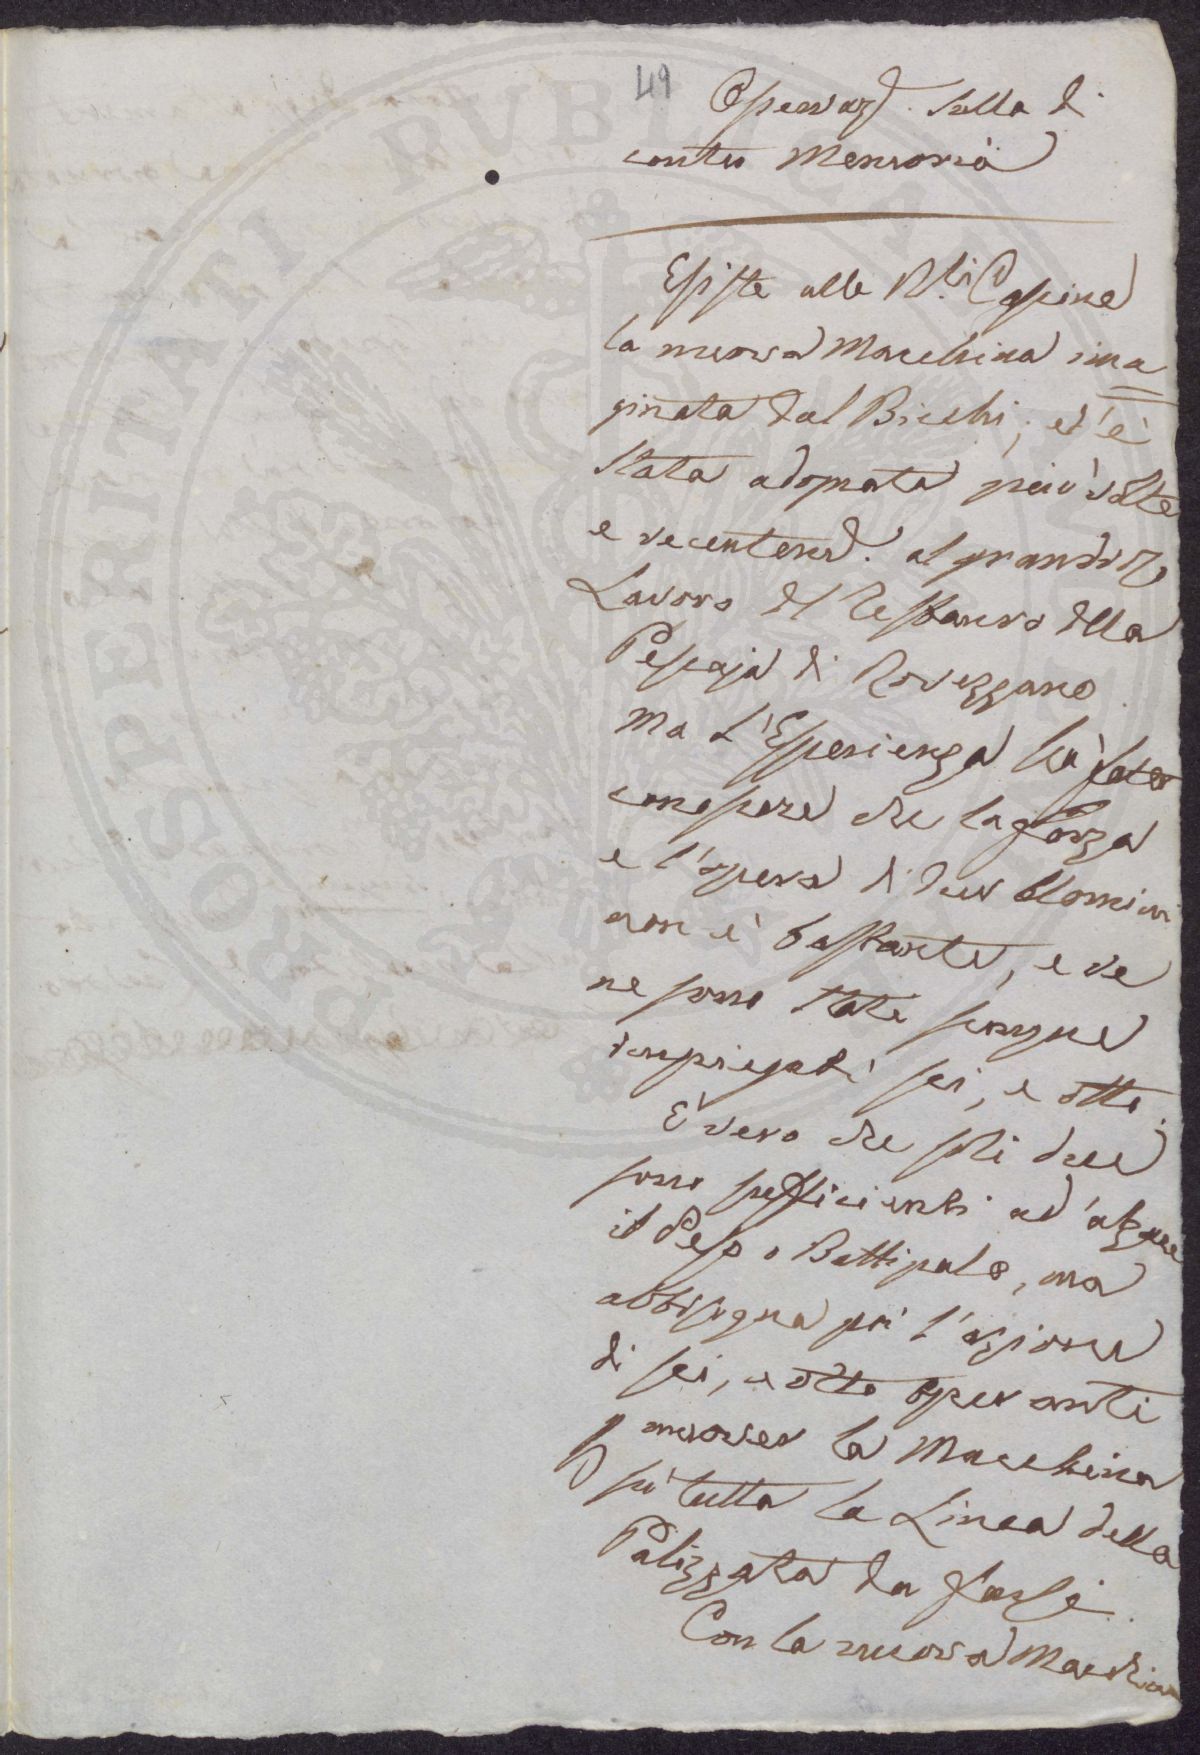 49
Osservaz. sulla di
contro Memoria
Esiste alle R.li Cascine
la nuova Macchina ima
ginata dal Bicchi, ed è
stata adoprata più volte
e recentem. al grandioso
Lavoro del Restauro della
Pescaja di Rovezzano
Ma l'Esperienza hà fatto
conoscere che la forza
e l'opera di due Uomini
non è bastante, e ve
ne sono state sempre
impiegati sei, e otto.
È vero che soli due
sono sufficienti ad alzare
il Peso o Battipalo, ma
abbisogna poi l'azione
di sei, e otto operanti
p muover la Macchina
sù tutta la Linea della
Palizzata da farsi.
Con la nuova Macchina
PROSPERITATI PVBLICAE